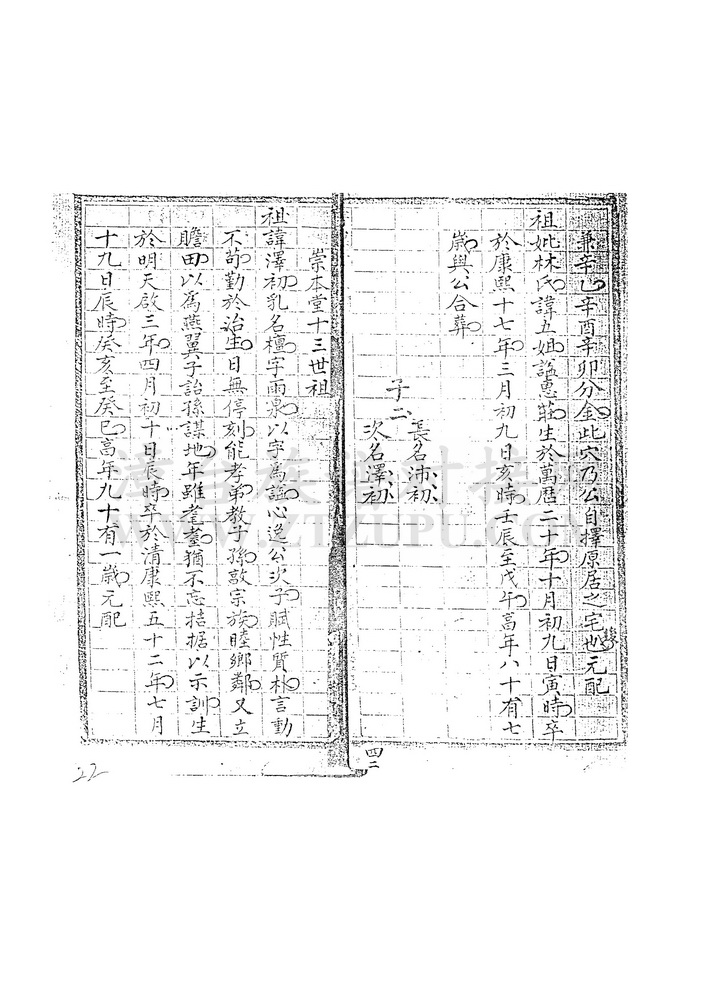 兼辛山辛酉辛卯分金此穴乃公自擇原居之宅也元配
祖妣林氏諱五姐諡惠莊生於萬曆二十年十月初九日寅時卒
於康熙十七年三月初九日亥時壬辰至戊午高年八十有七
歲與公合葬
子二
長名沛初
次名澤初
四二
崇本堂十三世祖
祖諱澤初乳名檀字雨泉以字為諡心逸公次子賦性質朴言動
不苟勤於治生日無停刻能孝弟教子孫敦宗族睦鄉鄰又立
贍田以為燕翼子詒孫謀地年雖耄耋猶不忘拮据以示訓生
於明天啟三年四月初十日辰時卒於清康熙五十二年七月
十九日辰時癸亥至癸巳高年九十有一歲元配
22
WWW.ZTZUPU.COM